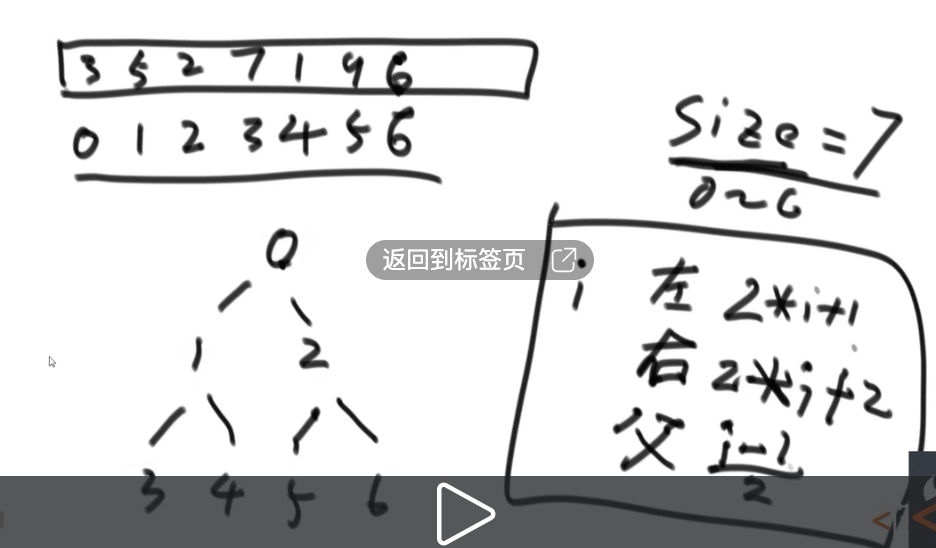 3 5 2 7 1 9 6
0 1 2 3 4 5 6
size=7
0~6
0
1 2
3 4 5 6
返回到标签页
i 左 2*i+1
右 2*i+2
父 i-1
2